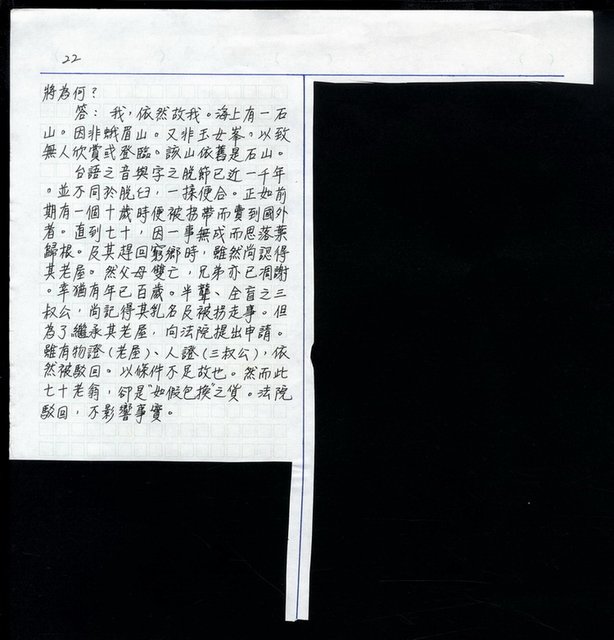 22
將為何?
答:我,依然故我。海上有一石
山。因非蛾眉山。又非玉女峯。以致
無人欣賞或登臨。該山依舊是石山。
台語之音與字之脫節已近一千年
。並不同於脫臼,一揉便合。正如前
期有一個十歲時便被拐帶而賣到國外
者。直到七十,因一事無成而思落葉
歸根。及其趕回窮鄉時,雖然尚認得
其老屋。然父母雙亡,兄弟亦已凋謝
。幸猶有年已百歲。半聾、全盲之三
叔公,尚記得其乳名及被拐走事。但
為了繼承其老屋,向法院提出申請。
雖有物證(老屋)、人證(三叔公),依
然被駁回。以條件不足故也。然而此
七十老翁,卻是"如假包換"之貨。法院
駁回,不影響事實。